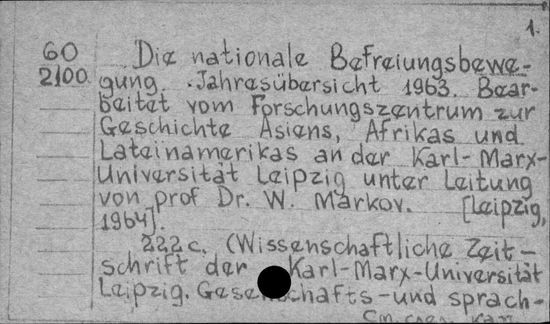 1.
60
2100
Die nationale Befreiungsbewe-
gung. Jahresübersicht 1963. Bear-
beitet vom Forschungszentrum zur
Geschichte Asiens, Afrikas und
Lateinamerikas an der Karl-Marx-
Universität Leipzig unter Leitung
von prof Dr. W. Markov. [Leipzig,
1964].
222 c. (Wissenschaftliche Zeit-
schrift der Karl-Marx-Universität
Leipzig. Gesellschafts- und sprach-
См. след. карт.